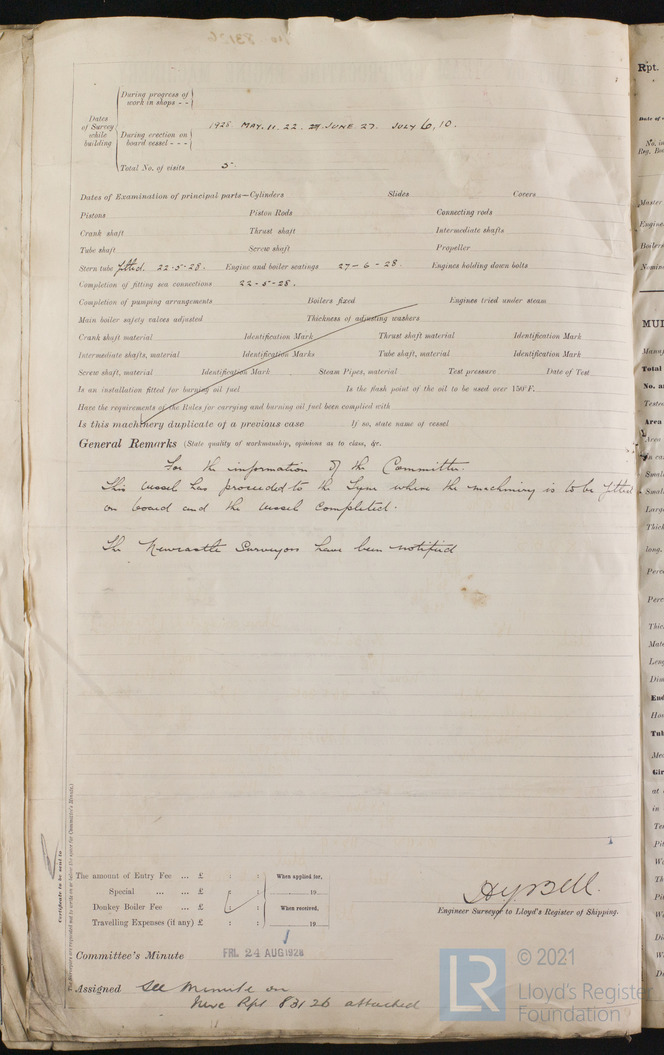 No 83126
During progress of
work in shops - -
Dates
of Survey
while
building
During erection on
board vessel - - -
1928 MAY. 11. 22. JUNE 27. JULY 6, 10.
Total No. of visits 5.
Dates of Examination of principal parts—Cylinders Slides Covers
Pistons Piston Rods Connecting rods
Crank shaft Thrust shaft Intermediate shafts
Tube shaft Screw shaft Propeller
Stern tube fitted. 22-5-28. Engine and boiler seatings 27-6-28. Engines holding down bolts
Completion of fitting sea connections 22-5-28.
Completion of pumping arrangements Boilers fixed Engines tried under steam
Main boiler safety valves adjusted Thickness of adjusting washers
Crank shaft material Identification Mark Thrust shaft material Identification Mark
Intermediate shafts, material Identification Marks Tube shaft, material Identification Mark
Screw shaft, material Identification Mark Steam Pipes, material Test pressure Date of Test
Is an installation fitted for burning oil fuel Is the flash point of the oil to be used over 150°F.
Have the requirements of the Rules for carrying and burning oil fuel been complied with
Is this machinery duplicate of a previous case If so, state name of vessel
General Remarks (State quality of workmanship, opinions as to class, &c.
For the information of the Committee.
This vessel has proceeded to the Tyne where the machinery is to be fitted
on board and the vessel completed.
The Newcastle Surveyors have been notified
Certificate to be sent to
The amount of Entry Fee ... £ : : When applied for,
Special ... ... £ : : 19
Donkey Boiler Fee ... £ : : When received,
Travelling Expenses (if any) £ : : 19
H.J. Bell.
Engineer Surveyor to Lloyd's Register of Shipping.
Committee's Minute FRI. 24 AUG 1928
Assigned See minute on
Nwc Rpt 83126 attached
LR
© 2021
Lloyd's Register
Foundation
Rpt.
Date of
No. in
Reg. Bo
Master
Engine
Boilers
MUL
Total
No. a
Area
Small
Thick
long.
Perce
Perc
Mate
Dia
End
Tub
Gir
at
in